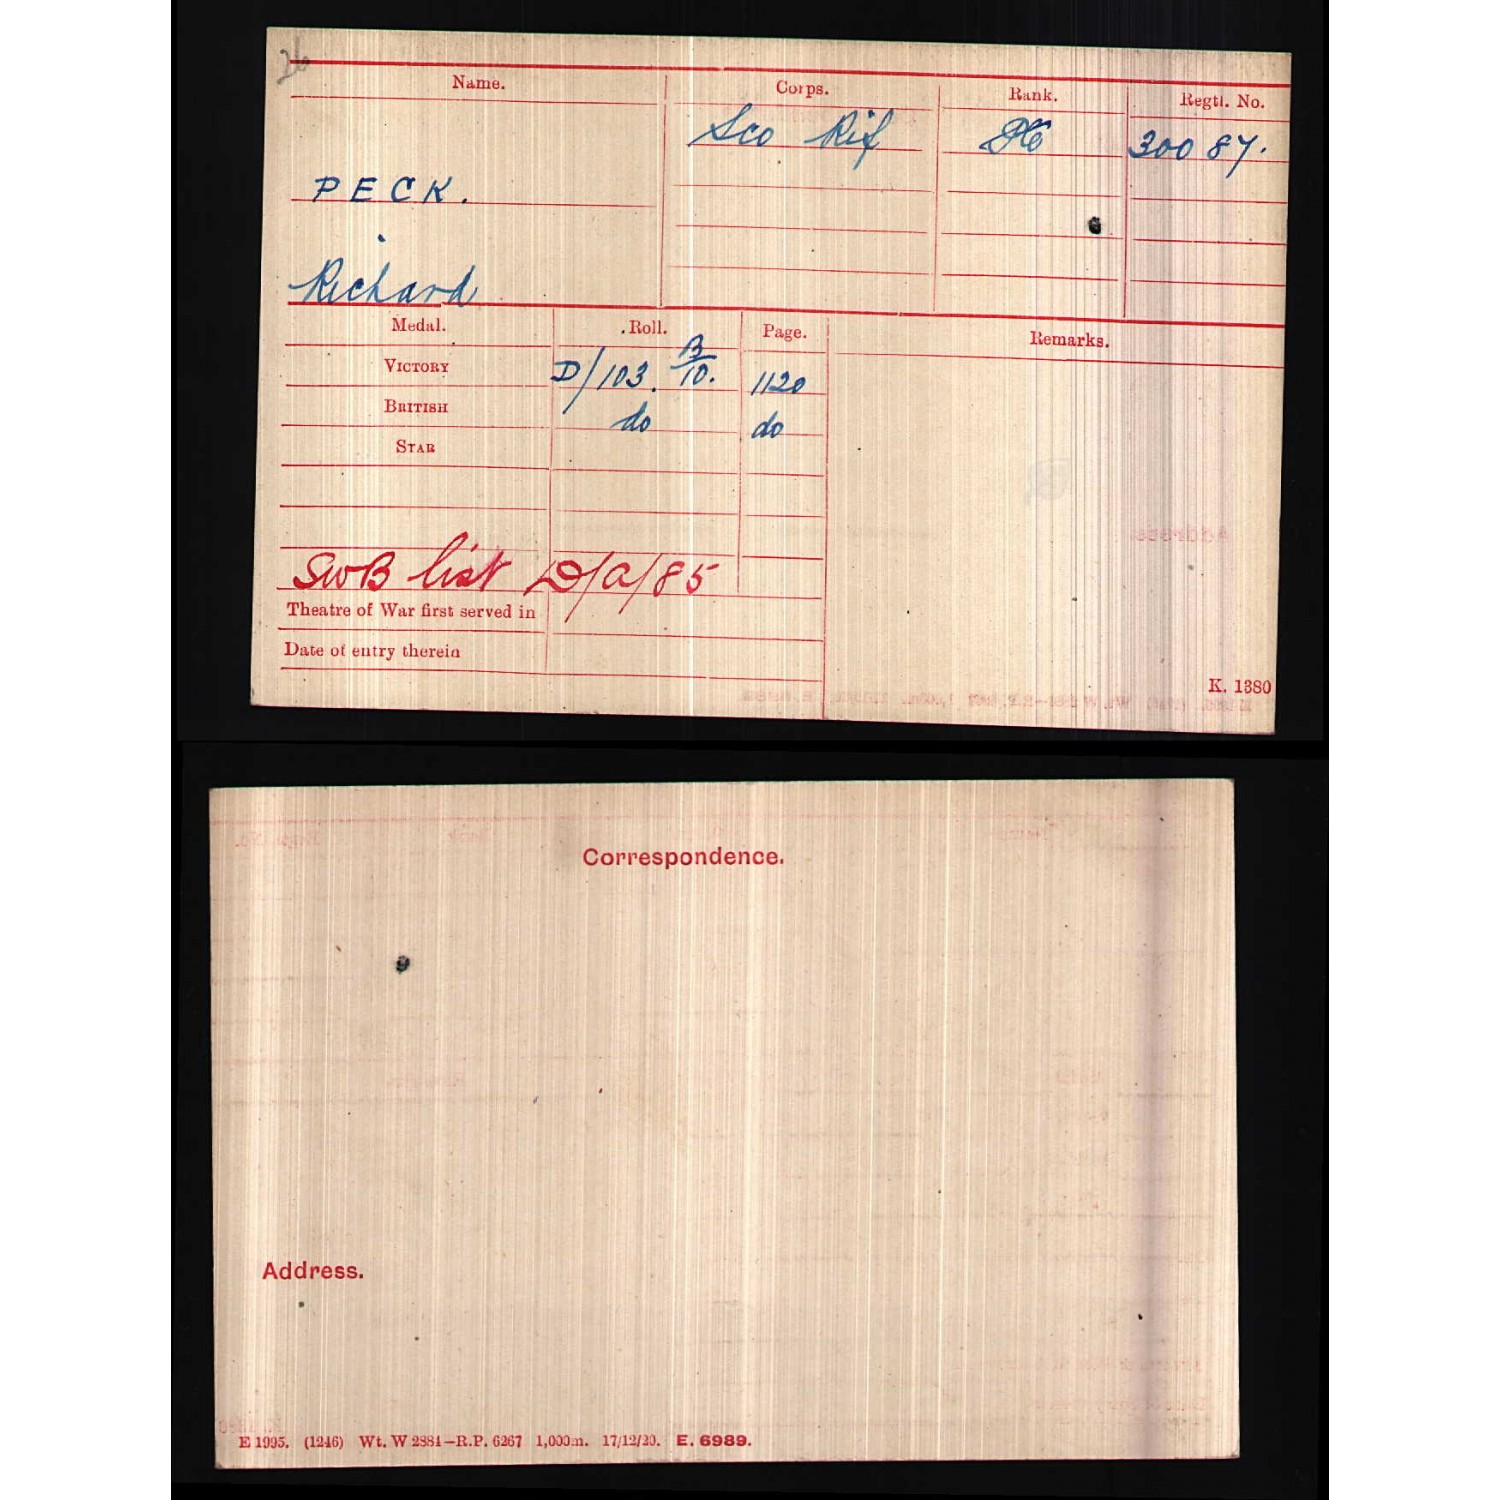 26
Name. Corps. Rank. Regtl. No.
Sco Rif Pte 30087.
PECK.
Richard
Medal. Roll. Page. Remarks.
VICTORY D/103. B/10. 1120
BRITISH do do
STAR
SWB list D/A/85
Theatre of War first served in
Date of entry therein
K. 1380
Correspondence.
Address.
E 1995. (1246) Wt. W 2884—R.P. 6267 1,000m. 17/12/20. E. 6989.